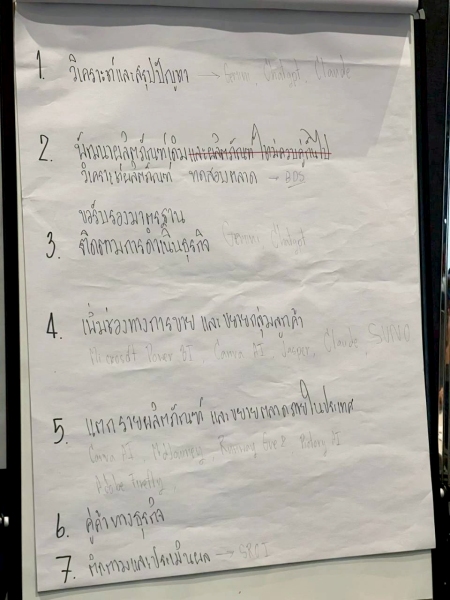 1. วิเคราะห์และสรุปปัญหา → Gemini, Chatgpt, Claude
2. พัฒนาผลิตภัณฑ์เดิมและผลิตภัณฑ์ใหม่ควบคู่กันไป
วิเคราะห์ผลิตภัณฑ์ ทดสอบตลาด → BDS
ขอรับรองมาตรฐาน
3. ติดตามการดำเนินธุรกิจ Gemini Chatgpt
4. เพิ่มช่องทางการขาย และขยายกลุ่มลูกค้า
Microsoft Power BI, Canva AI, Jasper, Claude, SUNO
5. แตกรายผลิตภัณฑ์ และขยายตลาดภายในประเทศ
Canva AI, Midjourney, Running AI
Adobe Firefly
6. คู่ค้าทางธุรกิจ
7. ติดตามและประเมินผล → SROI